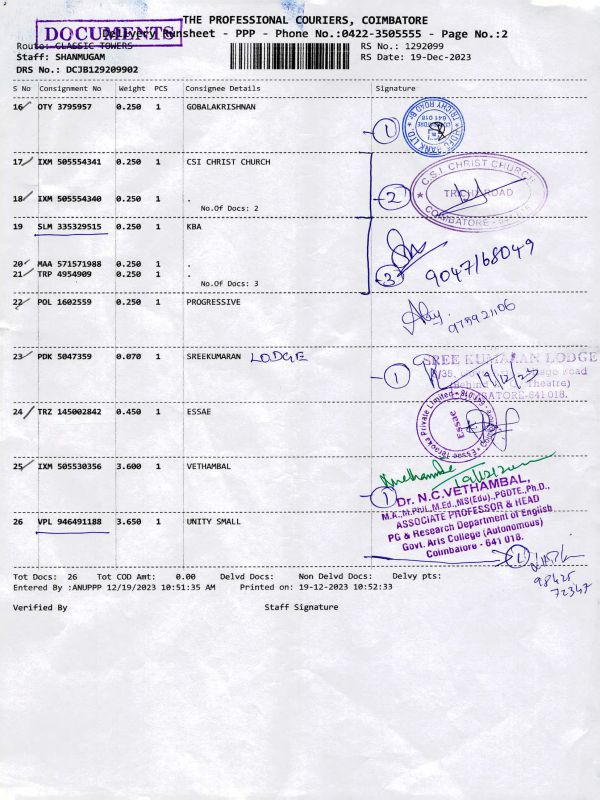 THE PROFESSIONAL COURIERS, COIMBATORE
DOCUMENTS
Delivery Runsheet - PPP - Phone No.:0422-3505555 - Page No.:2
Route: CLASSIC TOWERS
RS No.: 1292099
Staff: SHANMUGAM
RS Date: 19-Dec-2023
DRS No.: DCJB129209902
S No Consignment No Weight PCS Consignee Details Signature
16 OTY 3795957 0.250 1 GOBALAKRISHNAN
1
17 IXM 505554341 0.250 1 CSI CHRIST CHURCH
C.S.I. CHRIST CHURCH
TRICHY ROAD
18 IXM 505554340 0.250 1 .
2
No.Of Docs: 2
19 SLM 335329515 0.250 1 KBA
20 MAA 571571988 0.250 1 .
21 TRP 4954909 0.250 1 .
3
No.Of Docs: 3
22 POL 1602559 0.250 1 PROGRESSIVE
23 PDK 5047359 0.070 1 SREEKUMARAN LODGE
SREE KUMARAN LODGE
1 19/12/23
24 TRZ 145002842 0.450 1 ESSAE
Essae
25 IXM 505530356 3.600 1 VETHAMBAL
1
Dr. N.C.VETHAMBAL,
M.A.,M.Phil.,M.Ed.,MS(Edu).,PGDTE.,Ph.D.,
ASSOCIATE PROFESSOR & HEAD
PG & Research Department of English
Govt. Arts College (Autonomous)
Coimbatore - 641 018.
26 VPL 946491188 3.650 1 UNITY SMALL
1
Tot Docs: 26 Tot COD Amt: 0.00 Delvd Docs: Non Delvd Docs: Delvy pts:
Entered By :ANUPPP 12/19/2023 10:51:35 AM Printed on: 19-12-2023 10:52:33
98425
72347
Verified By Staff Signature